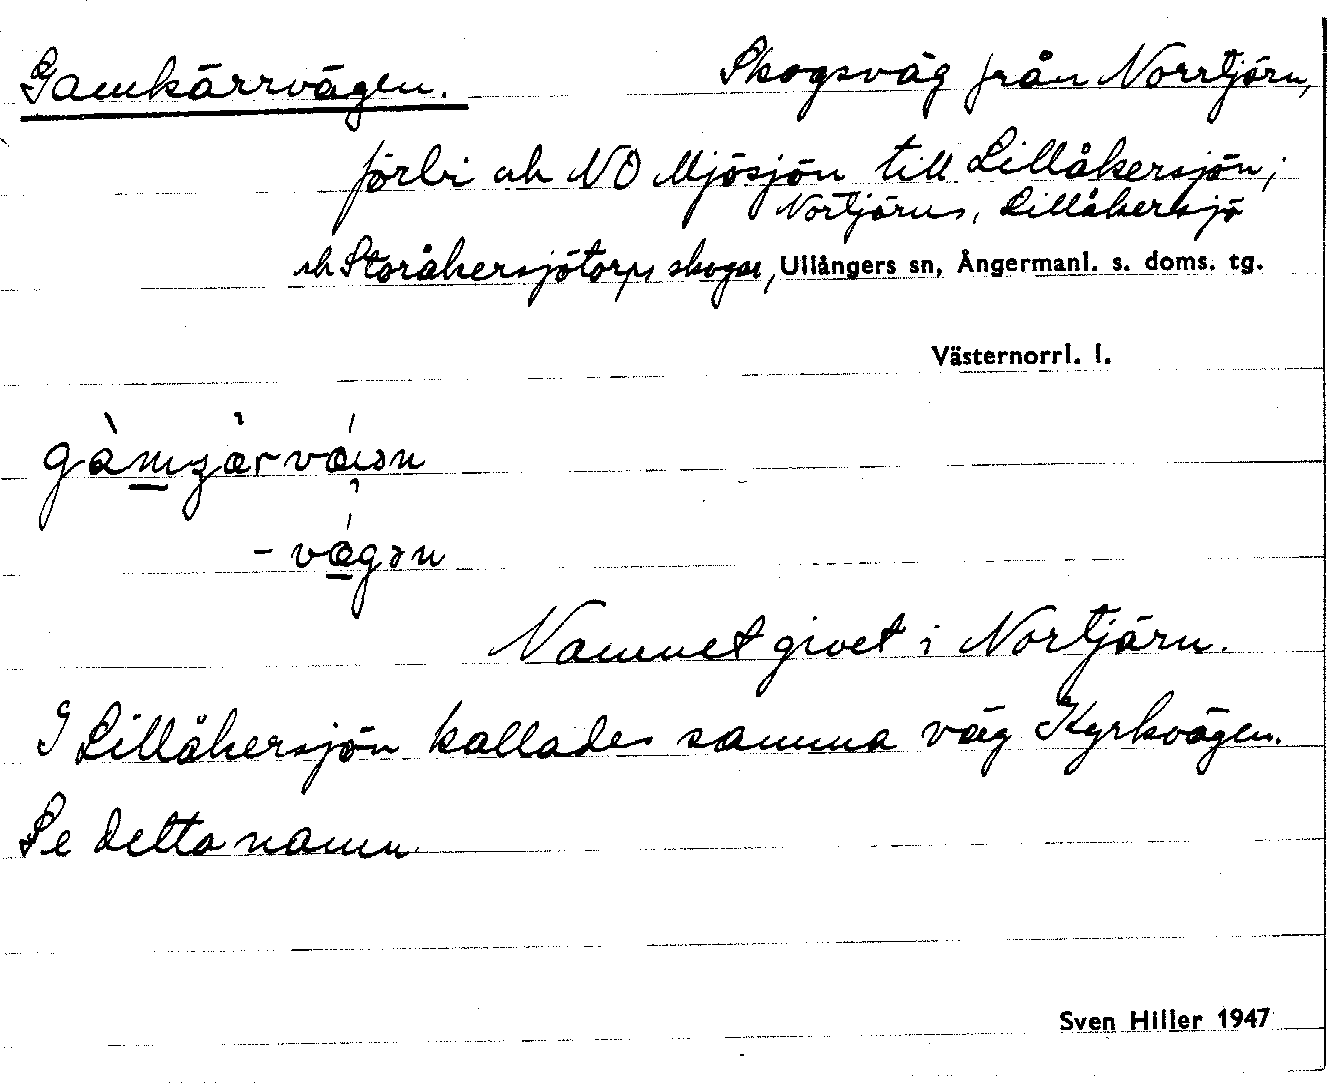 Gamkärrvägen. Skogsväg från Norrtjärn,
förbi och NO Mjösjön till Lillåkersjön;
Nortjärns, Lillåkersjö
och Storåkersjötorps skogar, Ullångers sn, Ångermanl. s. doms. tg.
Västernorrl. l.
-vǽgən
Namnet givet i Nortjärn.
I Lillåkersjön kallades samma väg Kyrkvägen.
Se detta namn
Sven Hiller 1947